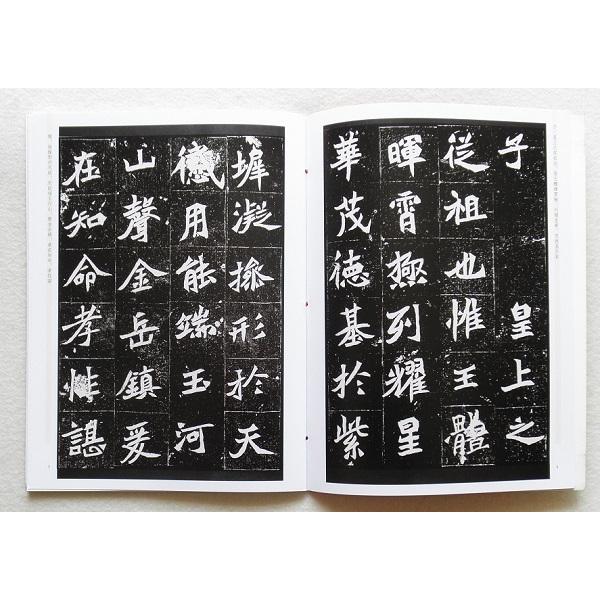 子　皇上之
從祖也惟王體
暉霄極列耀星
華茂德基於紫
墀凝操形於天
感用能端玉河
山聲金岳鎮爰
在知命孝性諶